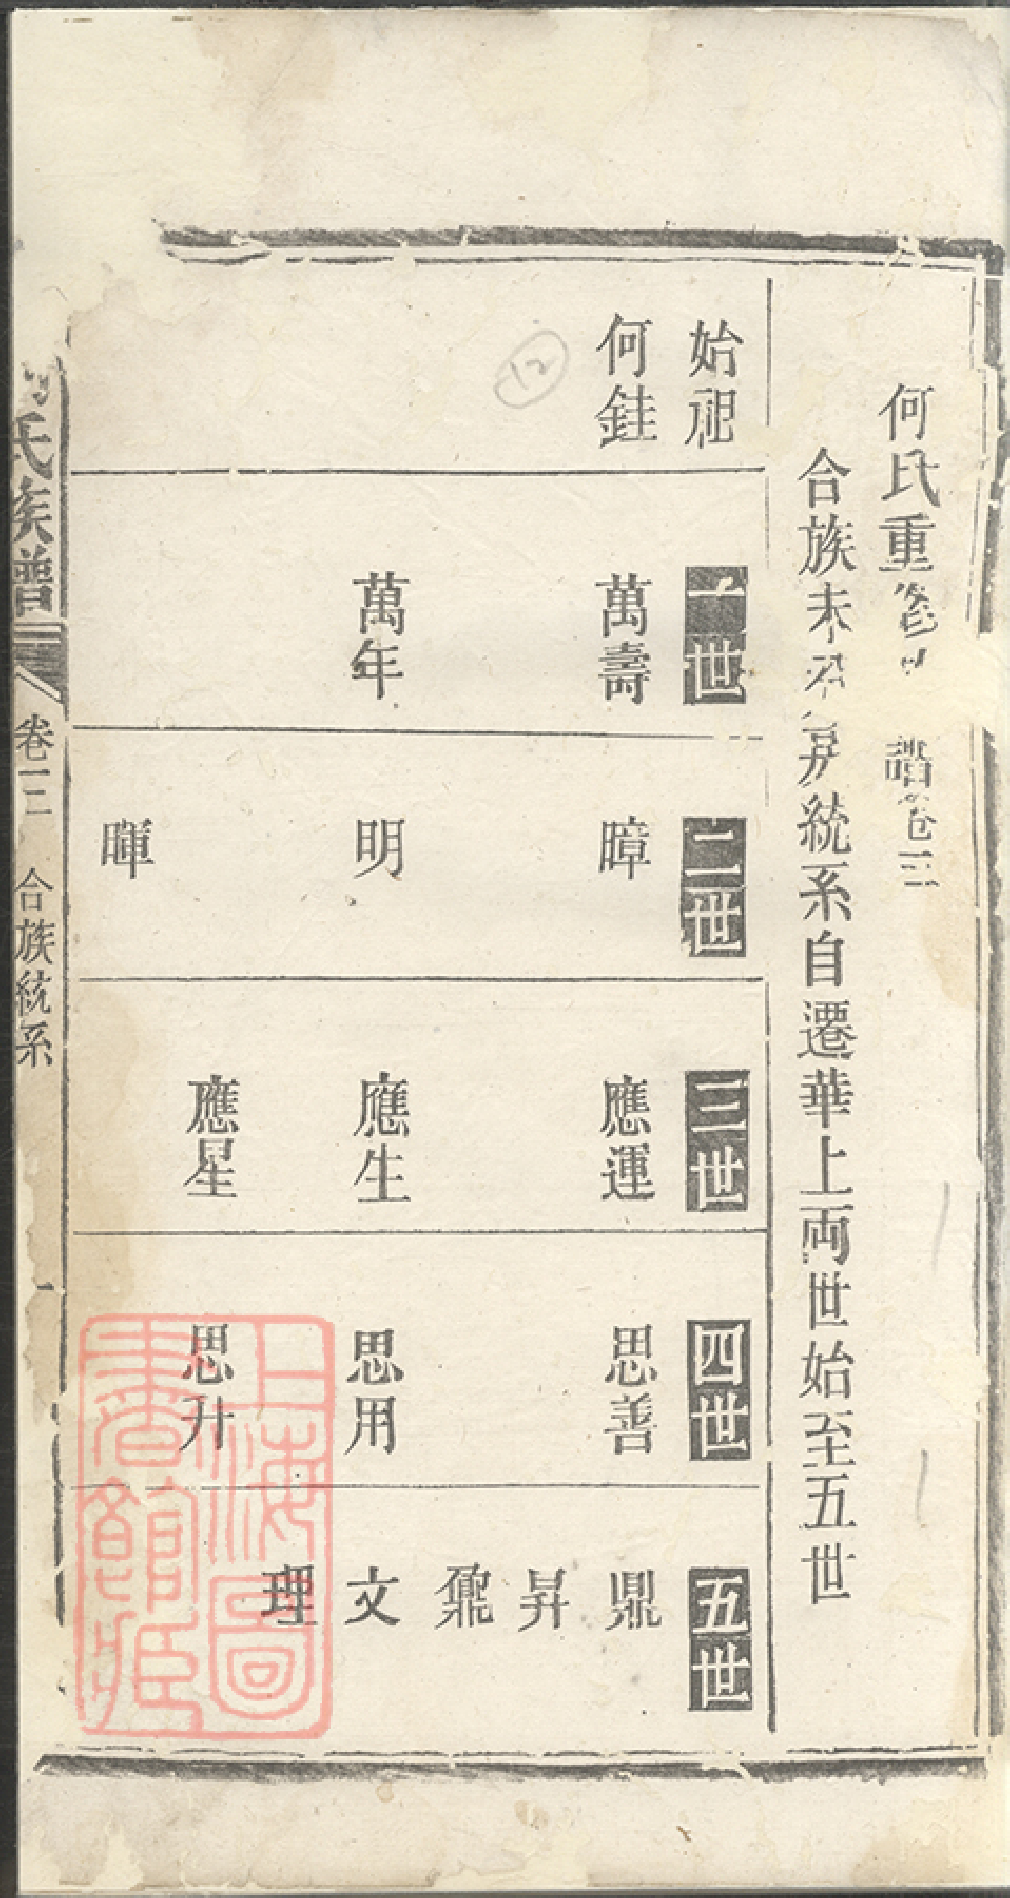 何氏重修
譜卷三
合族未
房統系自遷華上兩世始至五世
始祖
何銈
一世
萬壽
萬年
二世
暲
明
暉
三世
應運
應生
應星
四世
思善
思用
思升
五世
鼎
昇
鼐
文
理
氏族譜
卷三
合族統系
一
12
上海圖
書館藏